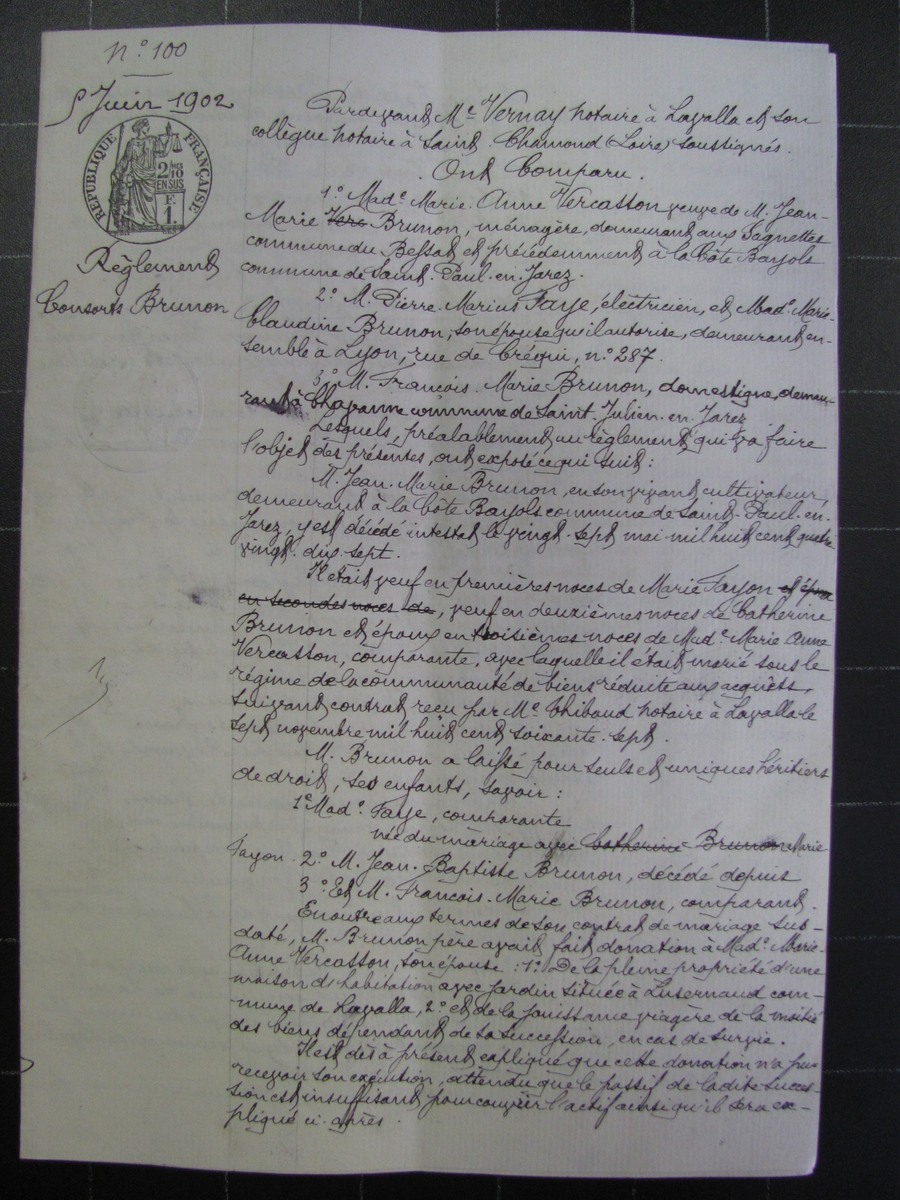 n° 100
5 Juin 1902
RÉPUBLIQUE FRANÇAISE
2/10 MES
EN SUS
F.
1.
Règlement
Consorts Brunon
Pardevant Me Vernay notaire à Lavalla et son
collègue notaire à Saint. Chamond (Loire) soussignés.
. Ont Comparu .
1° Made Marie. Anne Vercasson veuve de M. Jean-
Marie Verc Brunon, ménagère, demeurant aux Sagnettes
commune du Bessat et précédemment à la Côte Bayols
commune de Saint. Paul. en. Jarez.
2° M. Pierre. Marius Faye, électricien, et Made Marie-
Claudine Brunon, son épouse qu'il autorise, demeurant en-
semble à Lyon, rue de Créqui, n° 287.
3° M. François. Marie Brunon, domestique, demeu-
rant à Chavanne commune de Saint. Julien. en. Jarez
Lesquels, préalablement au règlement qui va faire
l'objet des présentes, ont exposé ce qui suit :
M. Jean. Marie Brunon, en son vivant cultivateur,
demeurant à la Côte Bayols commune de Saint. Paul. en.
Jarez, y est décédé intestat le vingt. sept mai mil huit cent quatre
vingt. dix. sept.
Il était veuf en premières noces de Marie Fayon et époux
en secondes noces de, veuf en deuxièmes noces de Catherine
Brunon et époux en troisièmes noces de Made Marie Anne
Vercasson, comparante, avec laquelle il était marié sous le
régime de la communauté de biens réduite aux acquêts,
suivant contrat reçu par Me Thibaud notaire à Lavalla le
sept novembre mil huit cent soixante. sept.
M. Brunon a laissé pour seuls et uniques héritiers
de droit, ses enfants, savoir :
1° Made Faye, comparante
née du mariage avec Catherine Brunon Marie
Fayon. 2° M. Jean. Baptiste Brunon, décédé depuis
3° Et M. François. Marie Brunon, comparant.
En outre aux termes de son contrat de mariage sus-
daté, M. Brunon père avait fait donation à Made Marie-
Anne Vercasson, son épouse : 1° De la pleine propriété d'une
maison d'habitation avec jardin située à Luzernaud com-
mune de Lavalla, 2° et de la jouissance viagère de la moitié
des biens dépendant de sa succession, en cas de survie.
Il est dès à présent expliqué que cette donation n'a pu
recevoir son exécution, attendu que le passif de ladite succes-
sion est insuffisant pour couvrir l'actif ainsi qu'il sera ex-
pliqué ci. après.